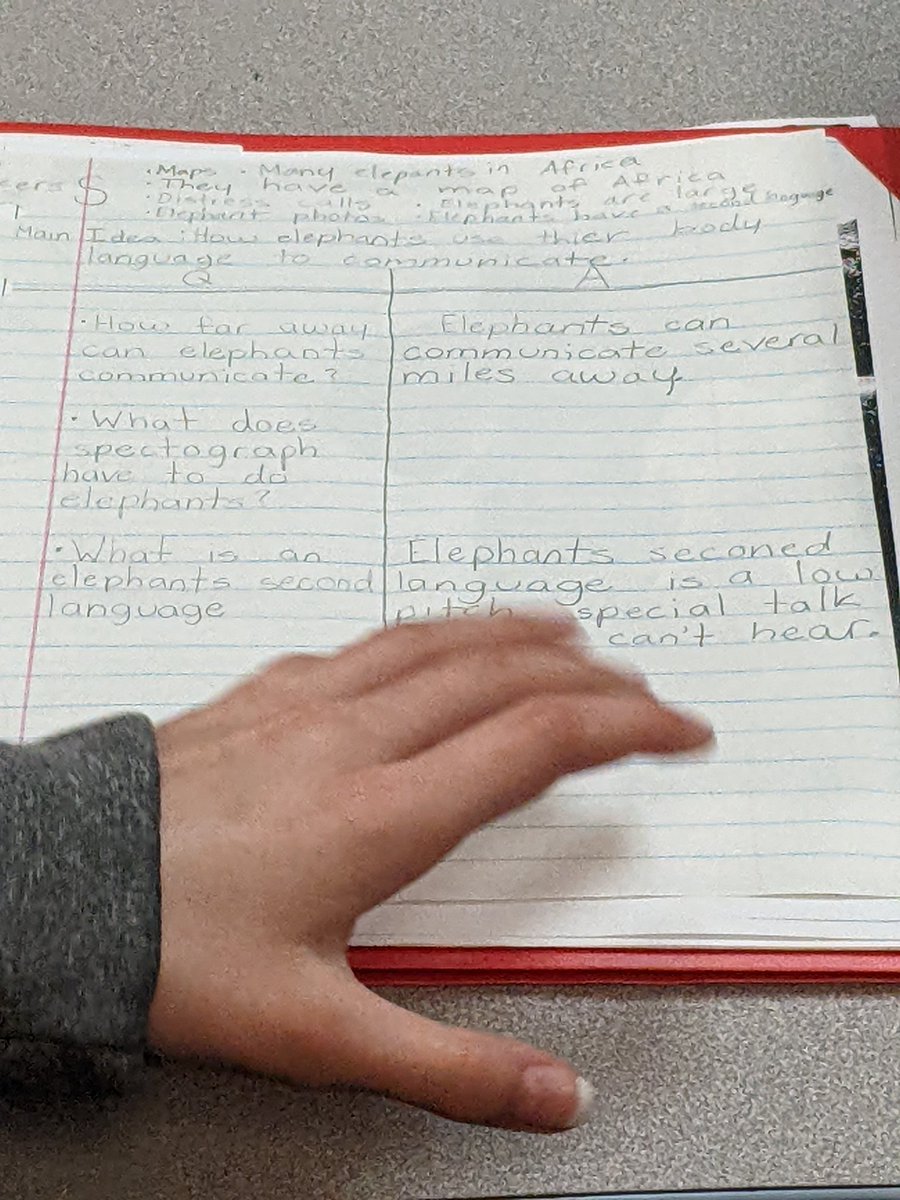 • Maps • Many elepants in Africa
cers S • They have a map of Africa
• Distress calls • Elephants are large
• Elephant photos • Elephants have a second language
Main Idea: How elephants use thier body
language to communicate.
Q A
• How far away
can elephants
communicate?
Elephants can
communicate several
miles away.
• What does
spectograph
have to do
elephants?
• What is an
elephants second
language
Elephants seconed
language is a low
pitch special talk
can't hear.